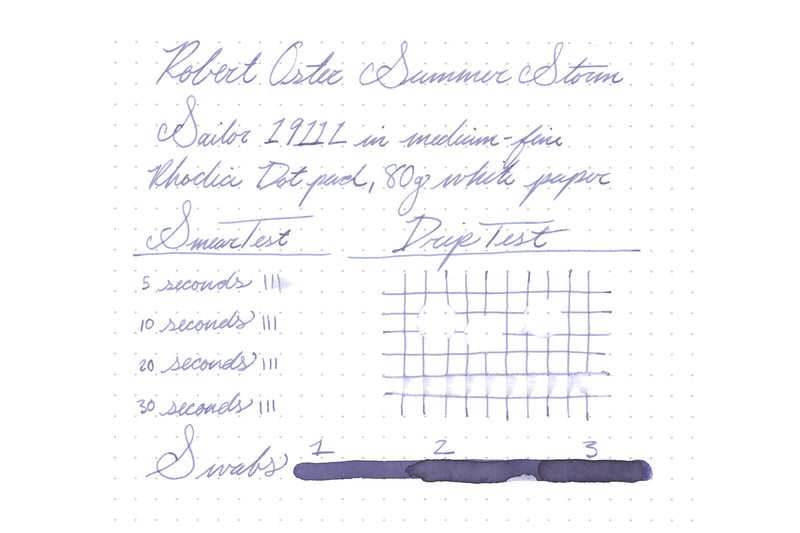 Robert Oster Summer Storm
Sailor 1911L in medium-fine
Rhodia Dot pad, 80g white paper
Smear Test
Drip Test
5 seconds |||
10 seconds |||
20 seconds |||
30 seconds |||
Swabs 1 2 3